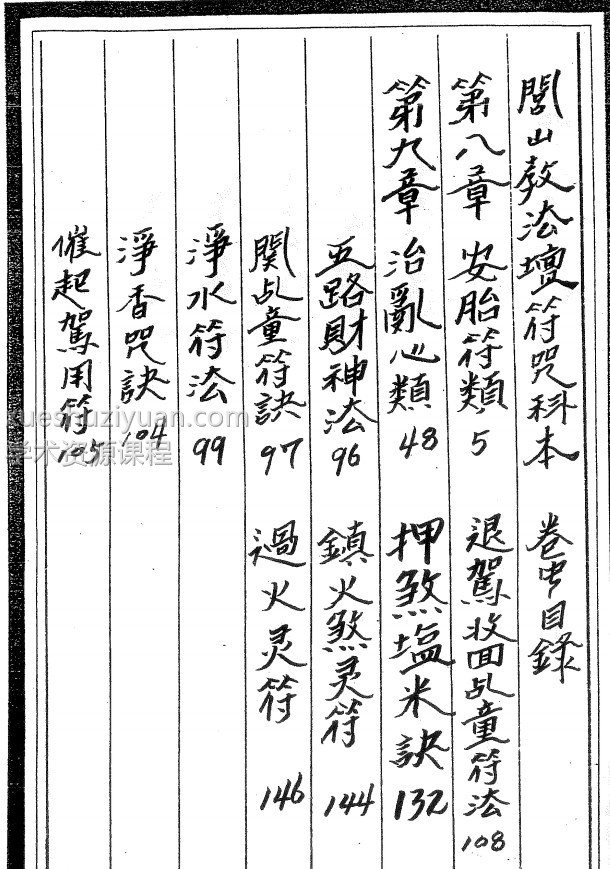 閭山教法壇符咒科本 卷中目錄
第八章 安胎符類 5
第九章 治亂心類 48
五路財神法 96
関乩童符訣 97
淨水符法 99
淨香咒訣 104
催起駕用符 105
退駕收回乩童符法 108
押煞塩米訣 132
鎮火煞灵符 144
過火灵符 146
xueshuziyuan.com
学术资源课程